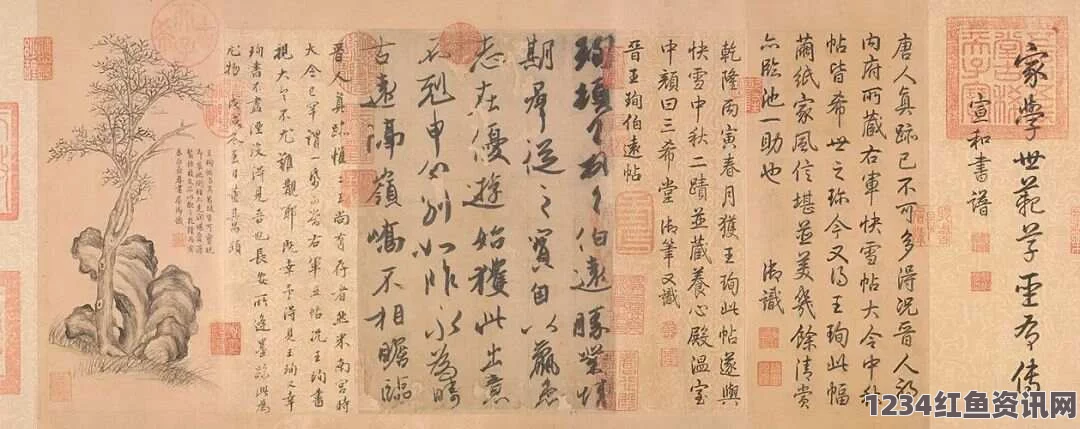 家學世範草聖有傳
宣和書譜
唐人真跡已不可多得況晉人耶
內府所藏右軍快雪帖大令中秋
帖皆希世之珍今又得王珣此幅
繭紙家風信堪並美幾餘清賞
亦臨池一助也 御識
乾隆丙寅春月獲王珣此帖遂與
快雪中秋二蹟並藏養心殿溫室
中顏曰三希堂 御筆又識
晉王珣伯遠帖
珣頓首頓首伯遠勝業情
期群從之寶自以羸患
志在優遊始獲此出意
不剋申分別如昨永為疇
古遠隔嶺嶠不相瞻臨
晉人真跡惟二王尚有存者然米南宮時
大令已罕謂一紙可當右軍五帖況王珣書
視大令不尤難覯耶既幸予得見王珣又幸
珣書不盡湮沒得見吾也長安所逢墨跡此為
尤物 戊戌冬至日董其昌題
1234红鱼资讯网